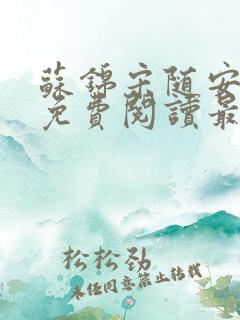 蘇錦宋随安
免費閱讀最
松松勁
未经同意禁止转载